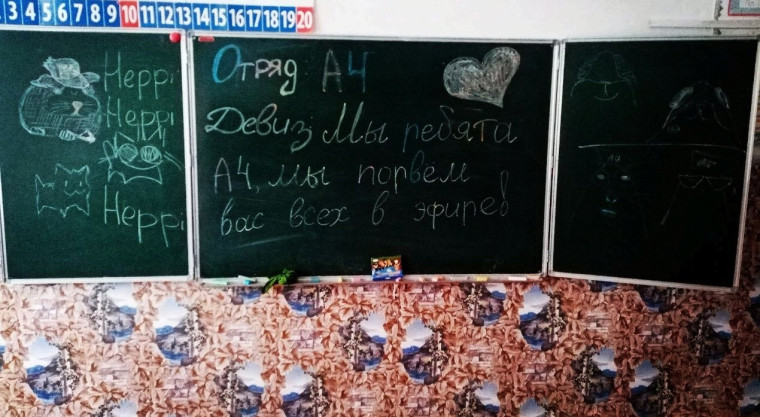 3 4 5 6 7 8 9 10 11 12 13 14 15 16 17 18 19 20
Heppi
Heppi
Heppi
Отряд А4
Девиз: Мы ребята
А4, мы порвём
вас всех в эфире!